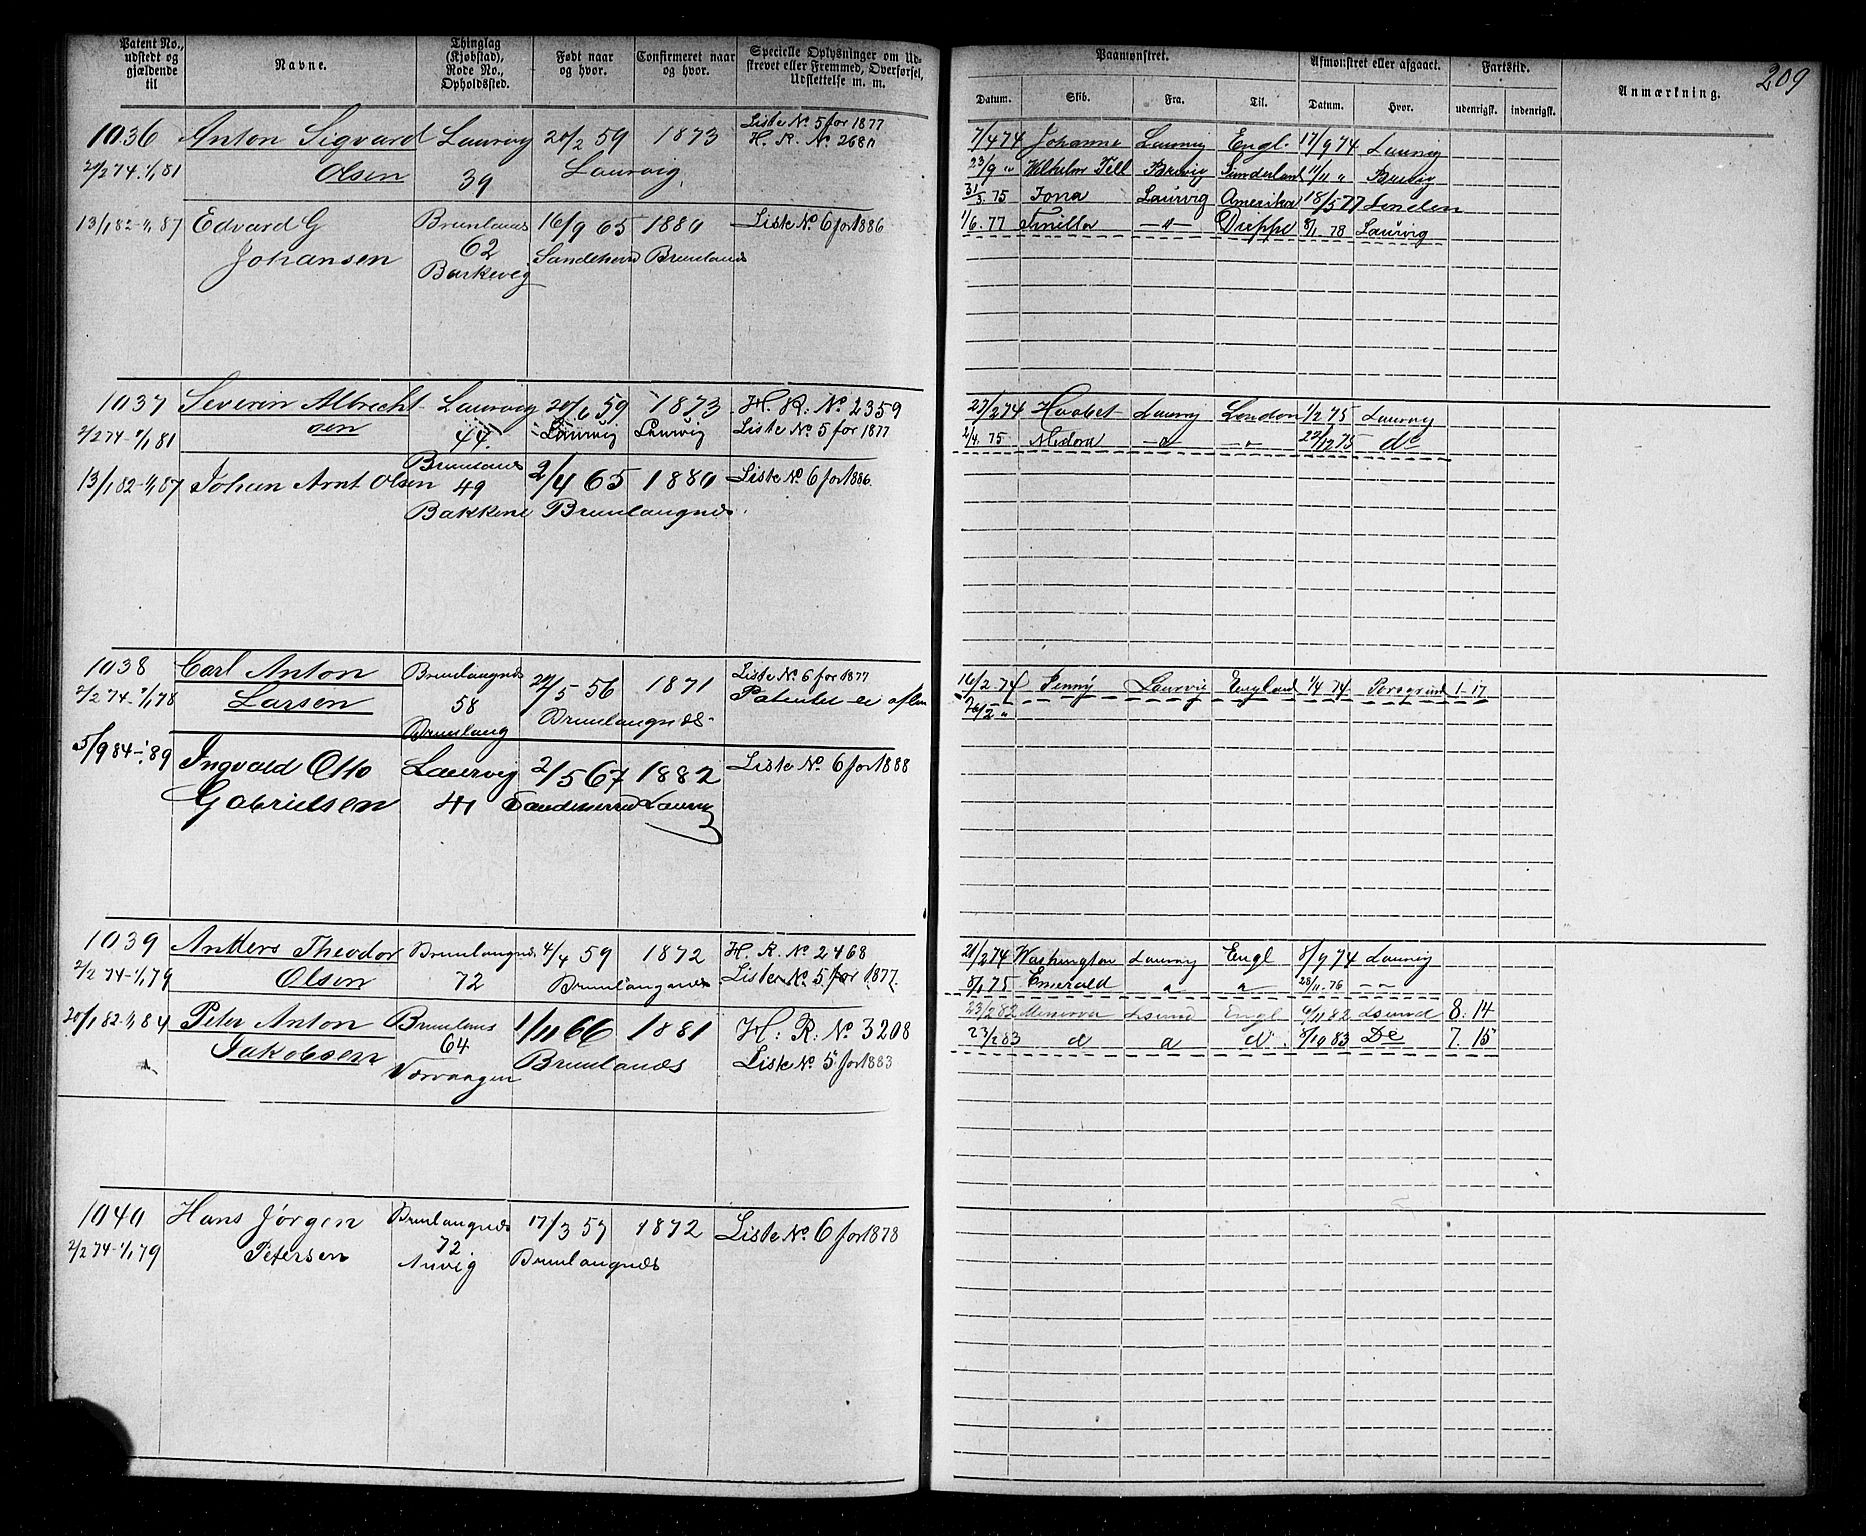 209
Patent No., udstedt og gjældende til
Navne.
Thinglag (Kjøbstad), Rode No., Opholdssted.
Født naar og hvor.
Confirmeret naar og hvor.
Specielle Oplysninger om Udskrevet eller Fremmed, Overførsel, Udslettelse m. m.
Paamønstret.
Afmønstret eller afgaaet.
Fartstid.
Anmærkning.
Datum. Skib. Fra. Til. Datum. Hvor. udenrigsk. indenrigsk.
1036 Anton Sigvard Laurvig 20/2 59 1873 Liste No 5 for 1877
H. R. No 2680
2/2 74-1/1 81 Olsen 39 Laurvig
7/4 74 Johanne Laurvig Engl. 17/9 74 Laurvig
23/9 " Wilhelm Tell Brevig Sunderland 1/11 " Brevig
31/5 75 Iona Laurvig Amerika 18/5 77 London
1/6 77 -"- Dieppe 8/1 78 Laurvig
13/1 82-1/1 87 Edvard G Brunlanes 16/9 65 1880 Liste No 6 for 1886
Johansen 62 Sandeherred Brunlanes
Barkevig
1037 Severin Albrecht- Laurvig 20/6 59 1873 H. R. No 2359
2/2 74-1/1 81 sen 44. Laurvig Laurvig Liste No 5 for 1877
27/2 74 Haabet Laurvig London 1/2 75 Laurvig
2/4 75 Medora -"- -"- 22/12 75 do
13/1 82-1/1 87 Johan Arnt Olsen Brunlanes 2/4 65 1880 Liste No 6 for 1886.
49
Bakkene Brunlangnes.
1038 Carl Anton Brunlangnes 29/5 56 1871 Liste No 6 for 1877
2/2 74-1/1 78 Larsen 58 Brunlangnæs. Patentet er
Brunlang
16/2 74 Jenny Laurvig England 1/4 74 Porsgrund 1-17
26/2 "
5/9 84-1/1 89 Ingvald Otto Laurvig 2/5 67 1882 Liste No 6 for 1888
Gabrielsen 41 Sandeherred Laurvig
1039 Anders Theodor Brunlangnes 4/4 59 1872 H. R. No 2468
2/2 74-1/1 79 Olsen 72 Brunlangnæs Liste No 5 for 1877.
21/2 74 Washington Laurvig Engl 8/9 74 Laurvig
8/1 75 Emerald " " 28/11 76 -"-
20/1 82-1/1 84 Peter Anton Brunlanes 1/11 66 1881 H. R. No 3208
Jakobsen 64 Brunlanæs Liste No 5 for 1883
Nævvangen
23/2 82 Minerva Lsund Engl 6/11 82 Lsund 8. 14
23/2 83 d " d 8/10 83 Do 7. 15
1040 Hans Jörgen Brunlangnæs 17/3 57 1872 Liste No 6 for 1878
2/2 74-1/1 79 Petersen 72 Brunlangnæs
Anvig